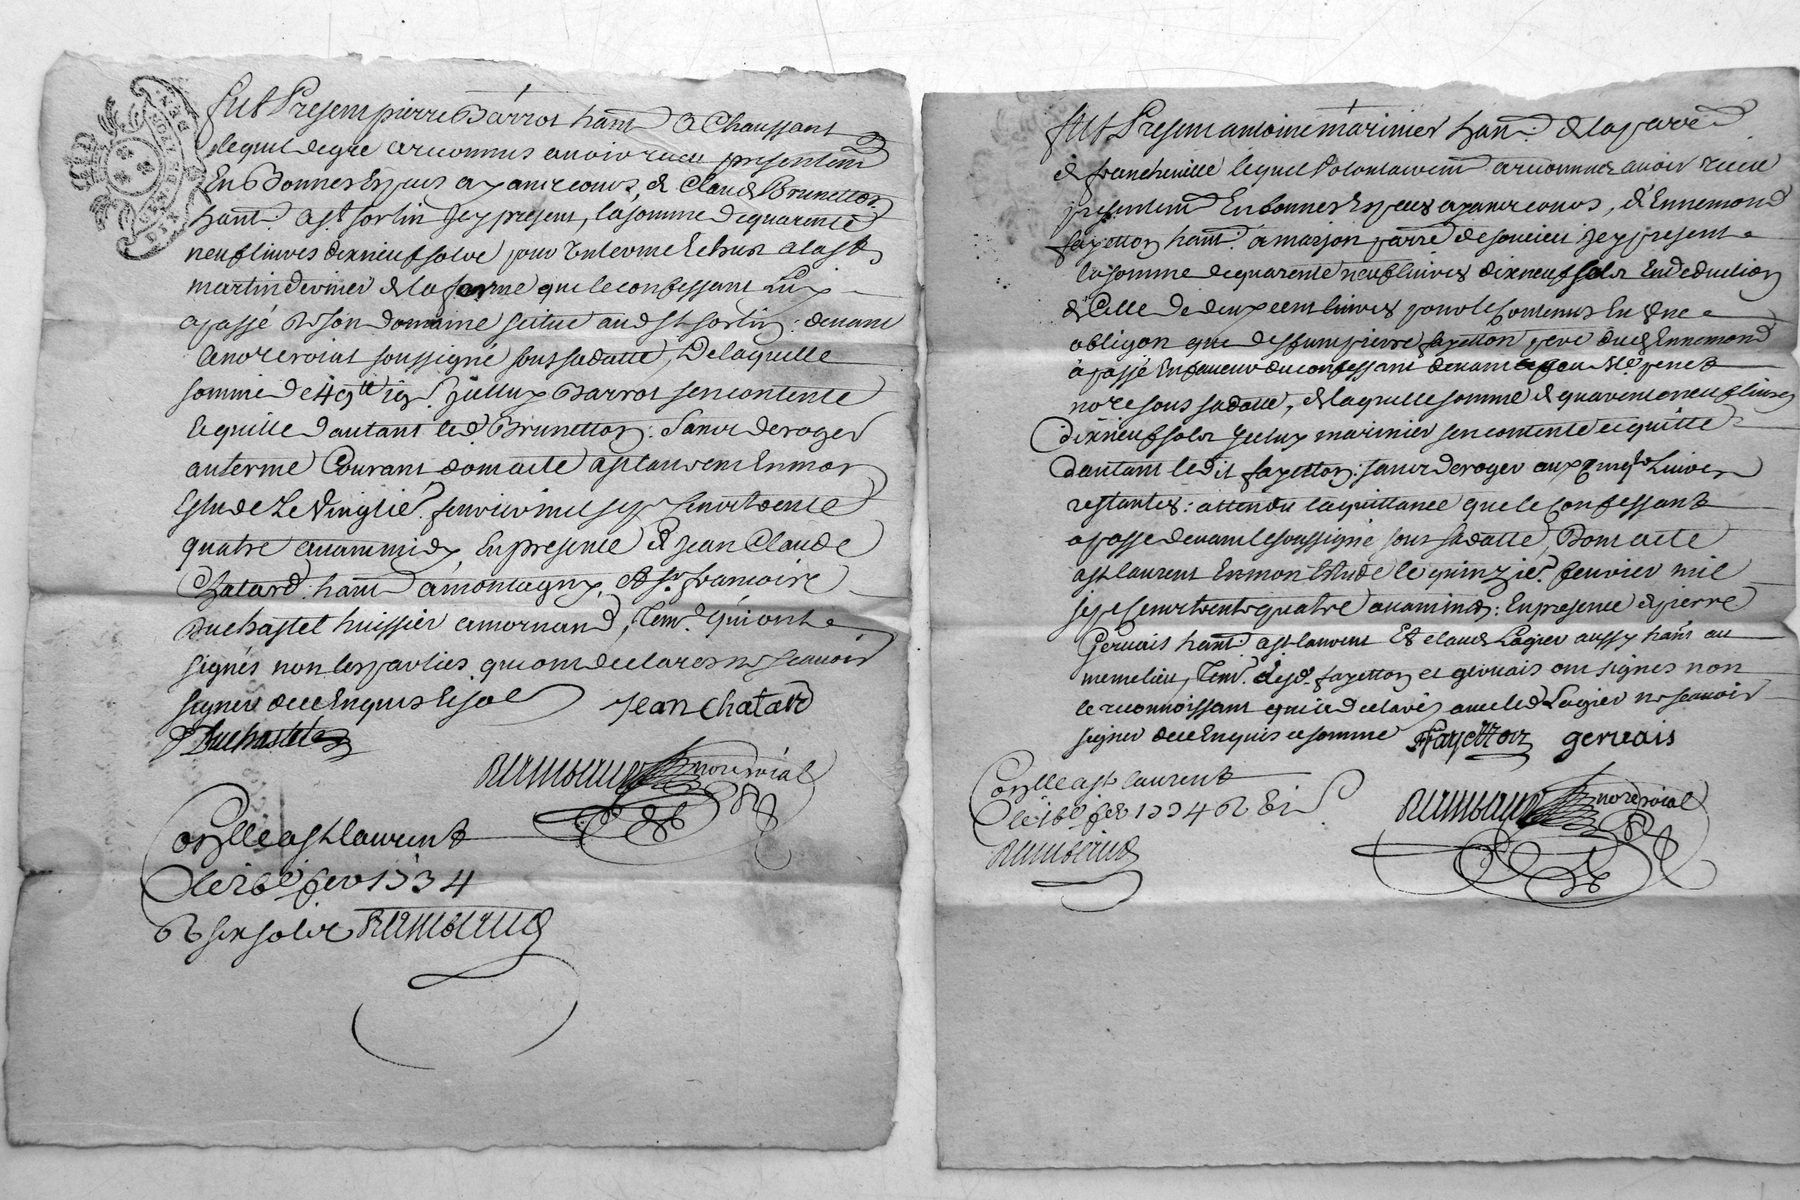 fut Present pierre Barrot hant. a Chaussant
lequel de gre a reconnus avoir receu presentemt
En Bonnes Especes ayant cours, de Claude Brunetton
hant. a st. sorlin Jcy present, la somme de quarente
neuf livres dix neuf sols pour Un terme Echus a la st
martin dernier de la ferme que le confessant Luy
a passé de son domaine scitué aud. st sorlin : devant
le nore roial soussigné sous sa datte, De laquelle
somme de 49tt 19s. Jcelluy Barrot sen contente
Et quitte dautant led. Brunetton : Sans deroger
au terme Courant dont acte a st laurent En mon
Estude Le Vingtie. fevrier mil sept Cent trente
quatre avant midy En presence de Jean Claude
Chatard hant. a montagny, Et sr. francois
Duchastel huissier a mornand, Tem. qui ont
signés non les parties qui ont declarés ne scavoir
signer de ce Enquis Et som Jean Chatard
Duchastel
nore roial
Conlle a st laurent
Le 26e fev 1734
R six sols
fut Present antoine marinier hant. de la parre
de francheville lequel Volontairemt a reconnus avoir receu
presentemt En bonnes Especes ayant cours, d'Ennemond
fayetton hant. a marjon parre de soucieu Jcy present
la somme de quarente neuf livres dix neuf sols En deduction
de Celle de deux cent livres pour le Contenus En une
obligon que deffunt pierre fayetton pere dud. Ennemond
a passé En faveur du confessant devant Me penet
nore sous sa datte, de laquelle somme de quarente neuf livres
dix neuf sols Jcelluy marinier sen contente et quitte
dautant ledit fayetton : sans deroger aux Livres
restantes : attendu la quittance que le Confessant
a passé devant le soussigné sous sa datte, Dont acte
a st laurent En mon Estude le quinzie. fevrier mil
sept Cent trente quatre avant midy : En presence de pierre
Gervais hant. a st laurent Et claude Lagier aussy hant. au
meme lieu, Tem. lesd. fayetton et gervais ont signés non
le reconnoissant qui a declaré avec led. Lagier ne scavoir
signer de ce Enquis et sommé fayetton gervais
Conlle a st laurent
Le 16e fev 1734 R
nore roial